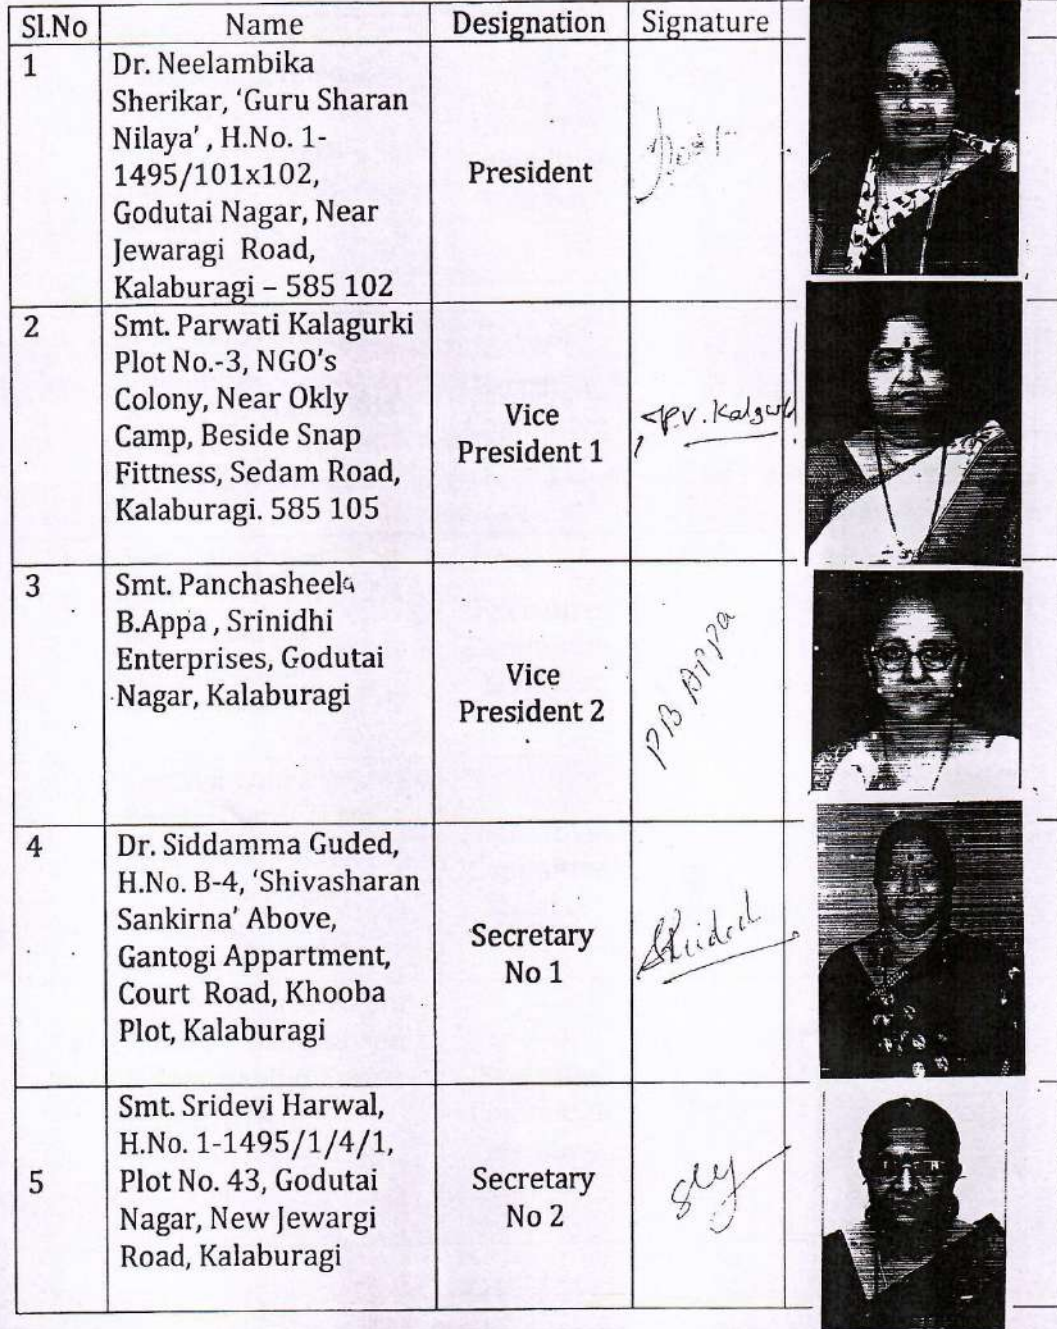 Sl.No Name Designation Signature
1 Dr. Neelambika
Sherikar, ‘Guru Sharan
Nilaya’ , H.No. 1-
1495/101x102,
Godutai Nagar, Near
Jewaragi Road,
Kalaburagi – 585 102
President
2 Smt. Parwati Kalagurki
Plot No.-3, NGO’s
Colony, Near Okly
Camp, Beside Snap
Fittness, Sedam Road,
Kalaburagi. 585 105
Vice
President 1
3 Smt. Panchasheela
B.Appa , Srinidhi
Enterprises, Godutai
Nagar, Kalaburagi
Vice
President 2
PB Appa
4 Dr. Siddamma Guded,
H.No. B-4, ‘Shivasharan
Sankirna’ Above,
Gantogi Appartment,
Court Road, Khooba
Plot, Kalaburagi
Secretary
No 1
5 Smt. Sridevi Harwal,
H.No. 1-1495/1/4/1,
Plot No. 43, Godutai
Nagar, New Jewargi
Road, Kalaburagi
Secretary
No 2